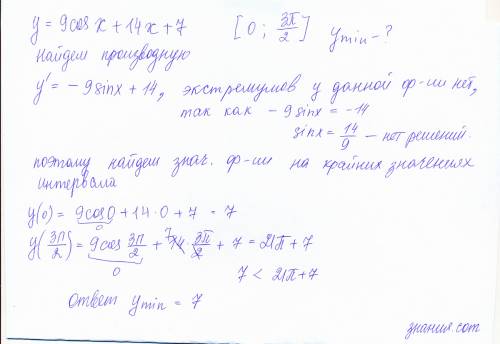 y = 9cos x + 14x + 7 [0 ; 3π/2] ymin - ?
Найдем производную
y' = - 9 sinx + 14, экстремумов у данной ф-ии нет,
так как - 9 sinx = -14
sinx = 14/9 - нет решений.
поэтому найдем знач. ф-ии на крайних значениях
интервала
y(0) = 9cos0 + 14·0 + 7 = 7
0
y(3π/2) = 9cos 3π/2 + 14· 3π/2 + 7 = 21π + 7
7
0
7 < 21π+7
Ответ ymin = 7
знания.com